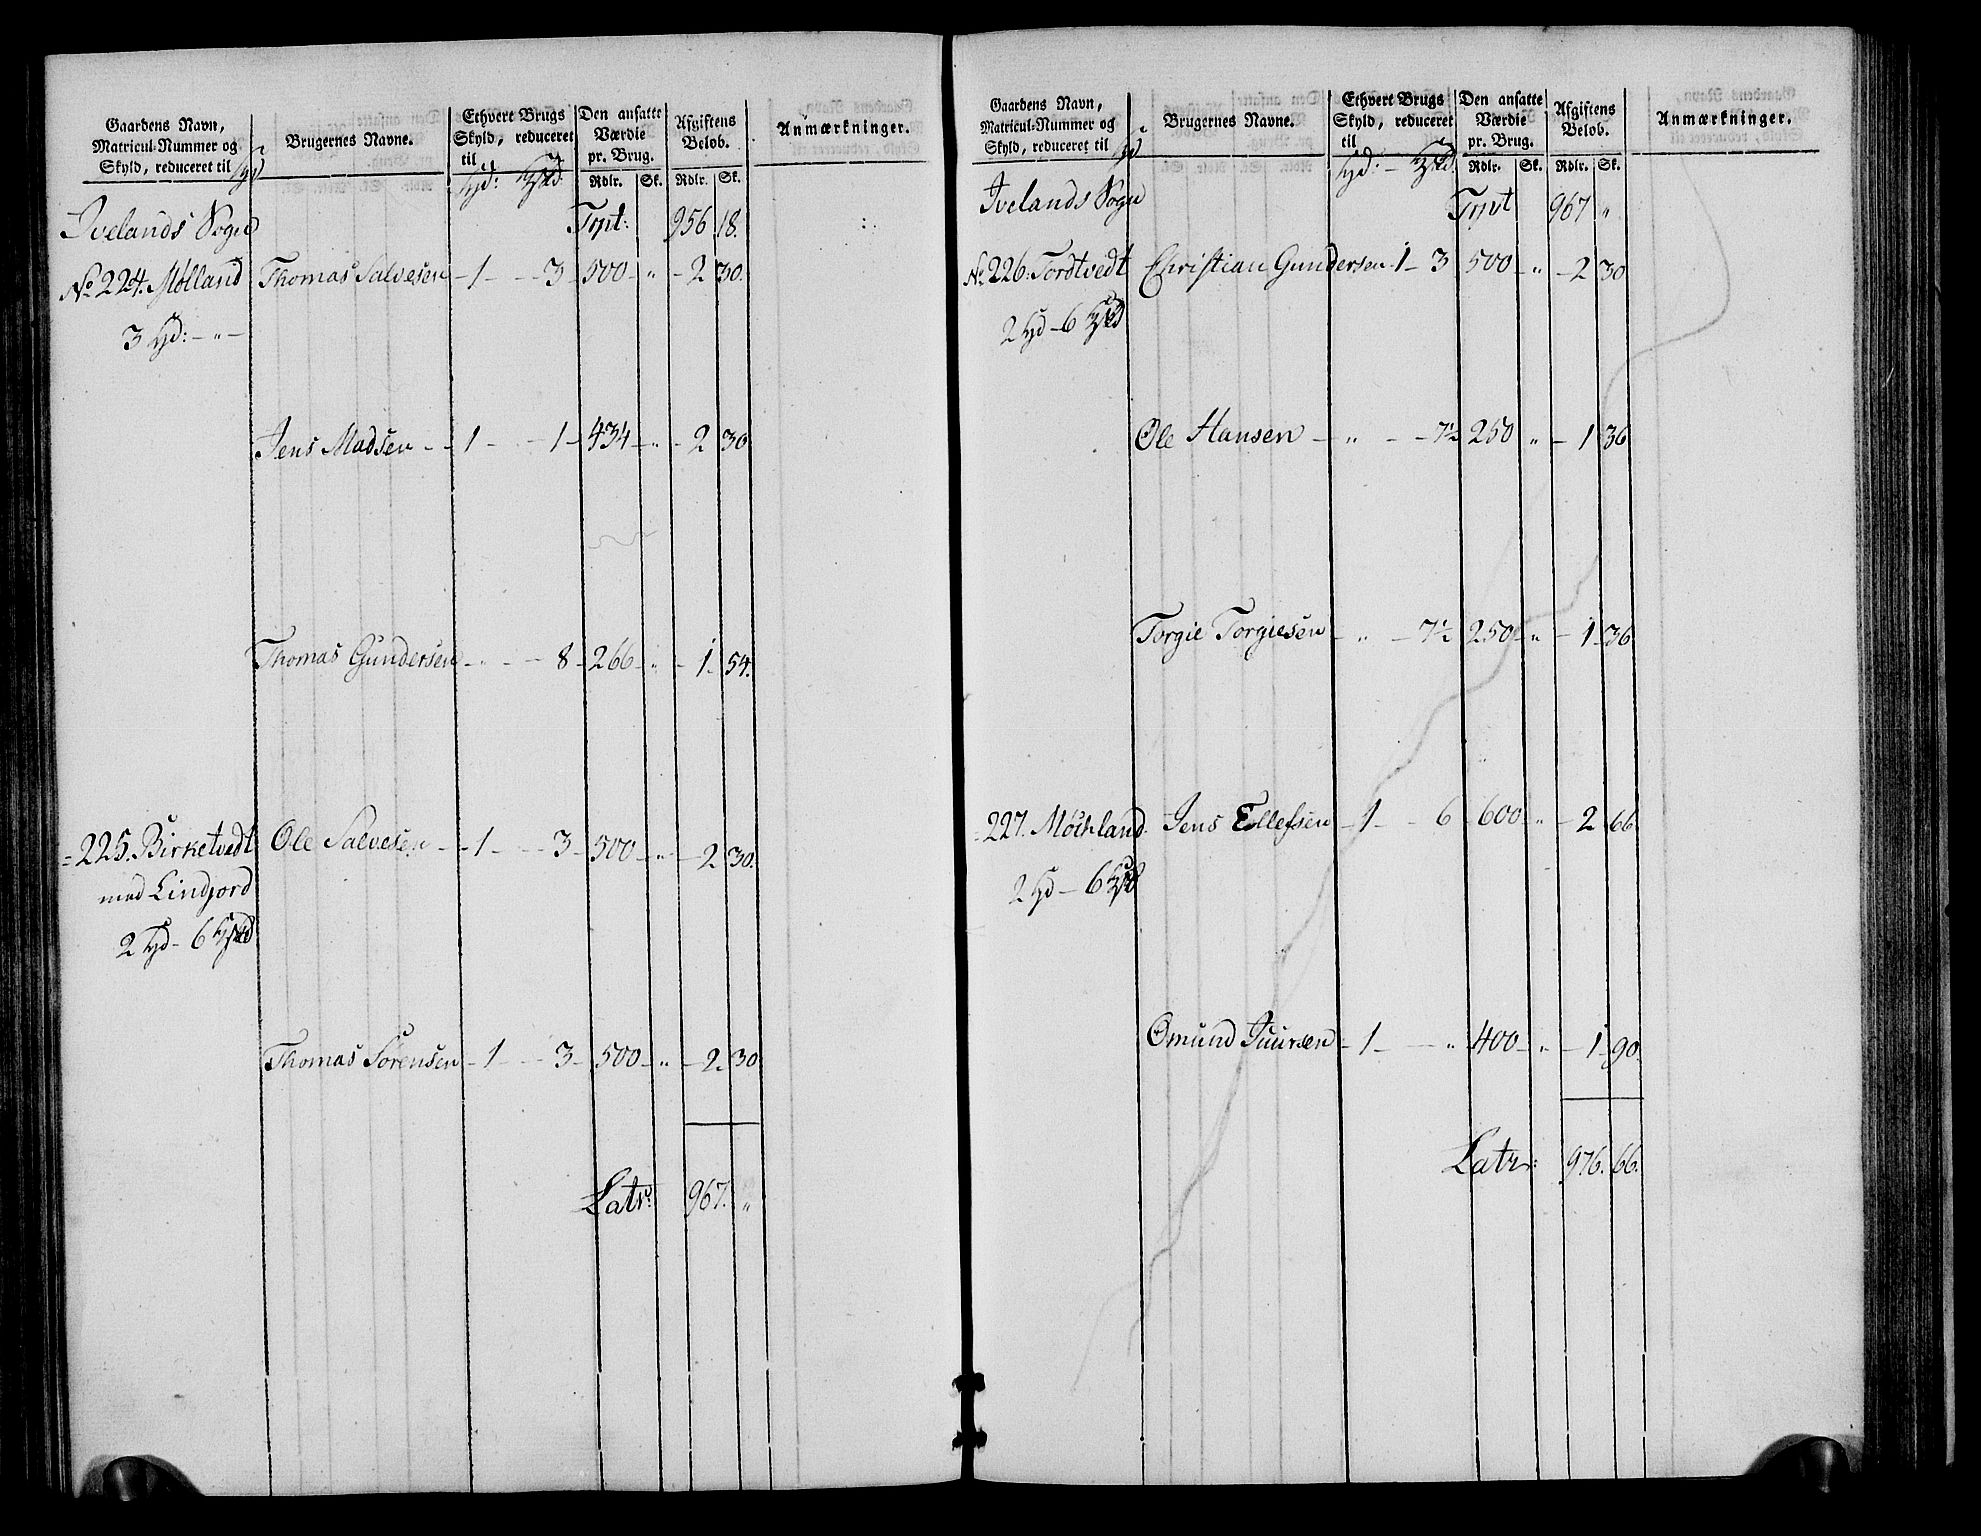 Gaardens Navn, Matricul-Nummer og Skyld, reduceret til | Brugernes Navne. | Ethvert Brugs Skyld, reduceret til | Den ansatte Værdie pr. Brug. | Afgiftens Beløb. | Anmærkninger.
Rdlr. Sk. Rdlr. Sk.
Ivelands Sogn Trpt: 956 18.
No 224. Mølland Thomas Salvesen - 1 - - 3 - 500 - " - 2 30.
3 hd: - " -
Jens Madsen - - 1 - - 1 - 434 - " - 2 30.
Thomas Gundersen - " - - 8 - 266 - " - 1 - 54.
= 225. Birketvedt Ole Salvesen - - 1 - - 3 - 500 - " - 2 30.
med Lindjord
2 hd - 6
Thomas Sørensen - 1 - - 3 - 500 - " - 2 - 30
Latr: 967. "
Gaardens Navn, Matricul-Nummer og Skyld, reduceret til | Brugernes Navne. | Ethvert Brugs Skyld, reduceret til | Den ansatte Værdie pr. Brug. | Afgiftens Beløb. | Anmærkninger.
Rdlr. Sk. Rdlr. Sk.
Ivelands Sogn Trpt 967 "
No 226. Tordtvedt Christian Gundersen - 1 - 3 500 - " - 2 30
2 hd - 6
Ole Hansen - " - - 7½ 250 " - 1 36
Torgie Torgiesen - " - 7½ 250 - " - 1 - 36
= 227. Møchland Jens Ellefsen - 1 - - 6 - 600 - " - 2 66
2 hd - 6
Omund Juursen - 1 - - " 400 - " - 1 - 90.
Latr: 976. 66.